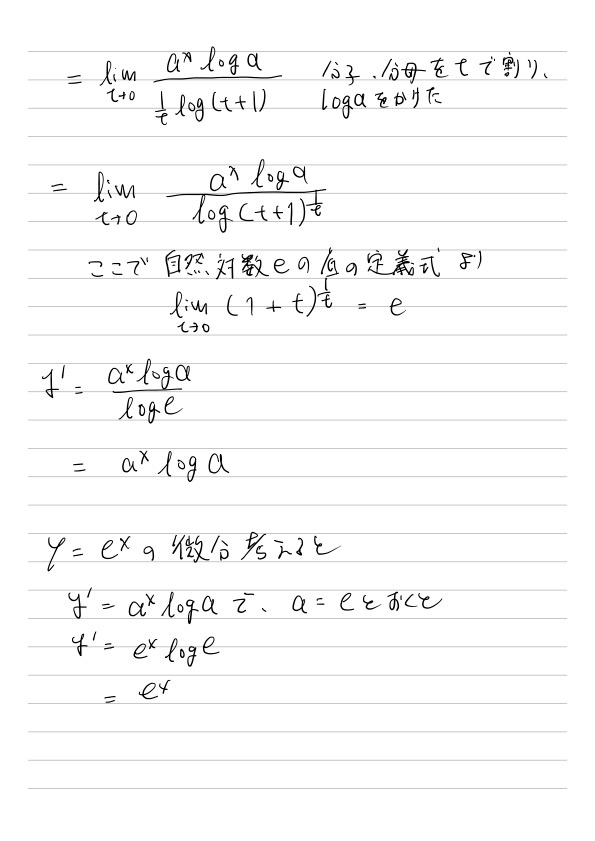 = lim_{t→0} a^x log a / (1/t log(t+1)) 分子、分母をtで割り、
log a をかけた
= lim_{t→0} a^x log a / log(t+1)^{1/t}
ここで 自然対数eの底の定義式 より
lim_{t→0} (1+t)^{1/t} = e
y' = a^x log a / log e
= a^x log a
y = e^x の 微分考えると
y' = a^x log a で、 a = e とおくと
y' = e^x log e
= e^x